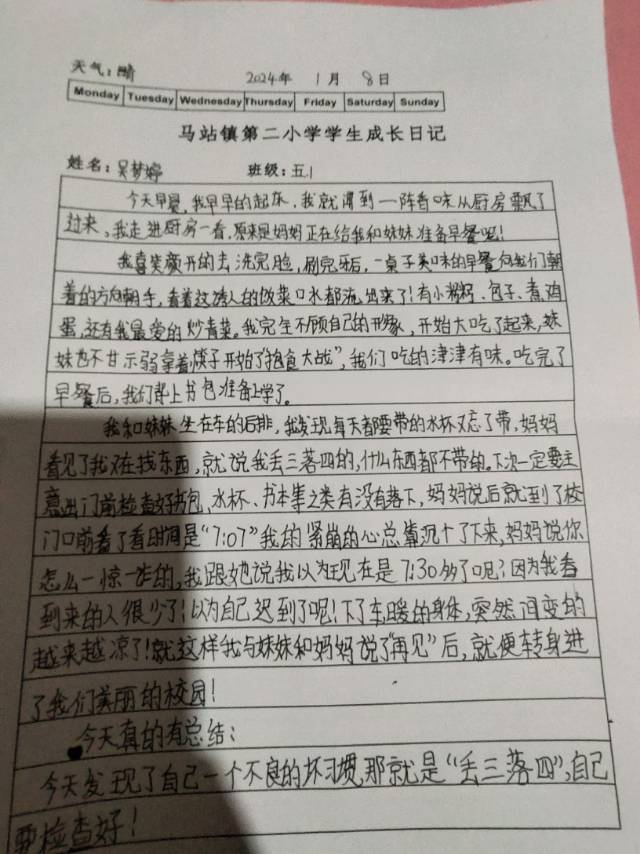 天气：晴 2024年 1月 8日
Monday Tuesday Wednesday Thursday Friday Saturday Sunday
马站镇第二小学学生成长日记
姓名：吴梦婷 班级：五.1
今天早晨，我早早的起床，我就闻到一阵香味从厨房飘了
过来，我走进厨房一看，原来是妈妈正在给我和妹妹准备早餐呢！
我喜笑颜开的去洗完脸，刷完牙后，一桌子美味的早餐向我们朝
着的方向朝手，看着这诱人的饭菜口水都流出来了！有小米粥、包子、煮鸡
蛋，还有我最爱的炒青菜。我完全不顾自己的形象，开始大吃了起来，妹
妹也不甘示弱拿着筷子开始了“抢食大战”，我们吃的津津有味。吃完了
早餐后，我们背上书包准备上学了。
我和妹妹坐在车的后排，我发现每天都要带的水杯又忘了带，妈妈
看见了我双在找东西，就说我丢三落四的，什么东西都不带的。下次一定要注
意出门前检查好书包、水杯、书本等之类有没有落下，妈妈说后就到了校
门口前看了看时间是“7:07”我的紧崩的心总算沉了下来，妈妈说你
怎么一惊一炸的，我跟她说我以为现在是7:30多了呢？因为我看
到来的人很少了！以为自己迟到了呢！下了车暖的身体，突然间变的
越来越凉了！就这样我与妹妹和妈妈说了“再见”后，就便转身进
了我们美丽的校园！
今天真的有总结：
今天发现了自己一个不良的坏习惯，那就是“丢三落四”，自己
要检查好！